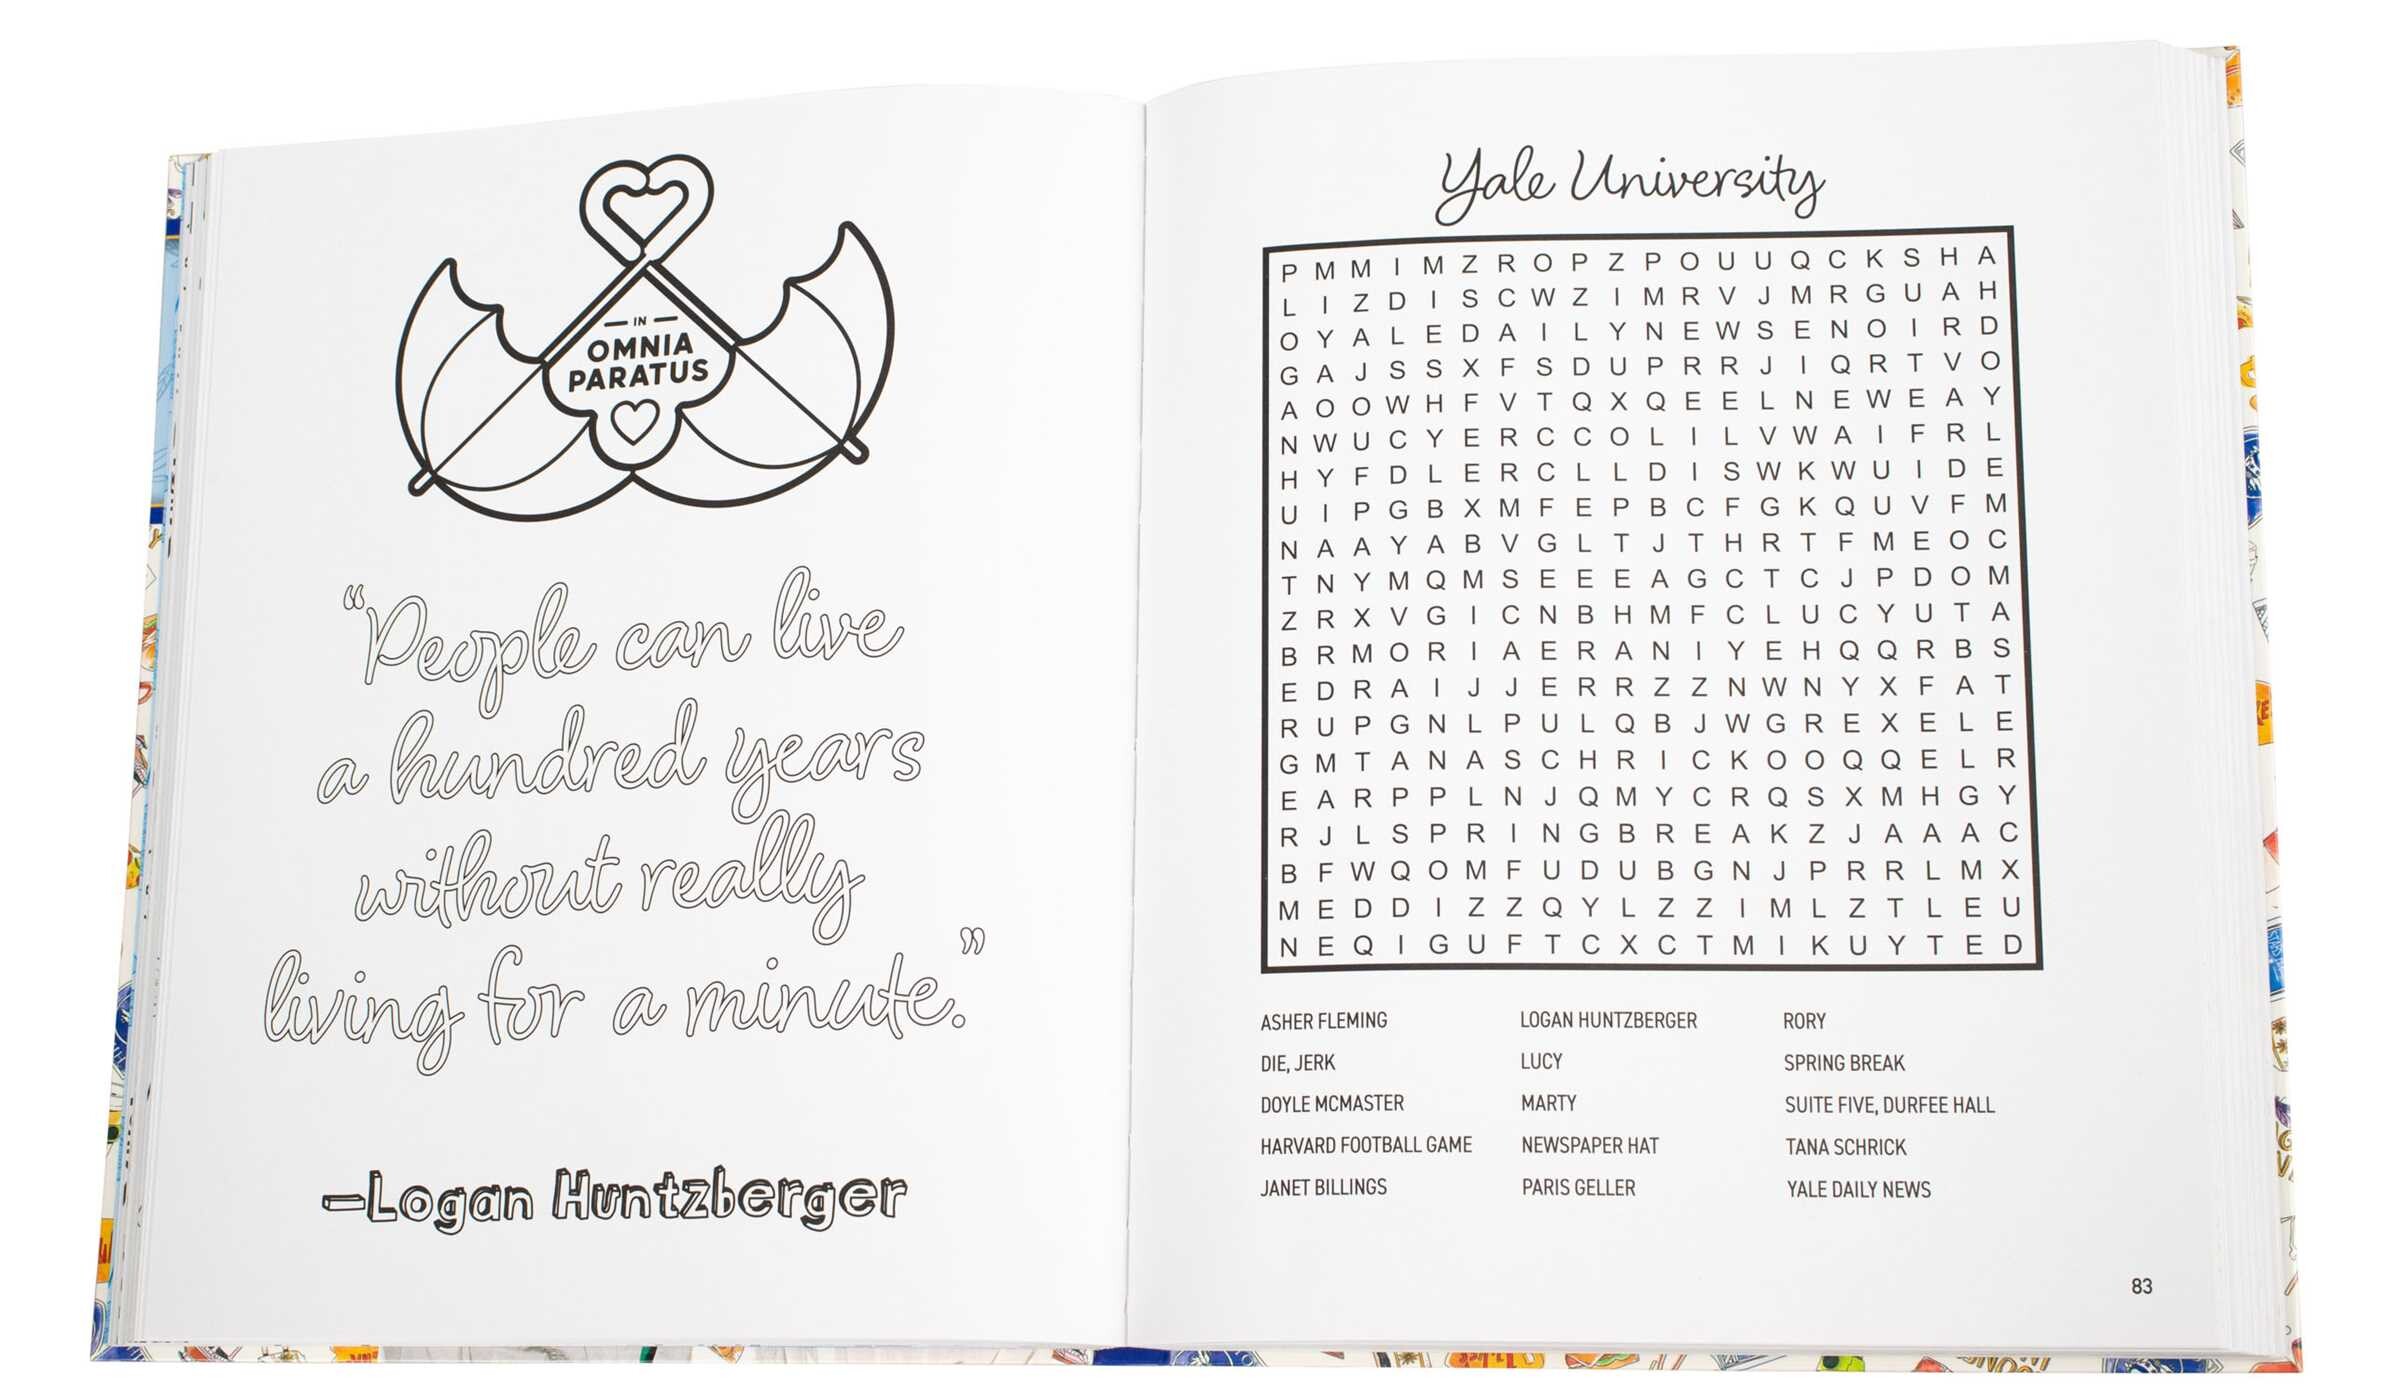 IN
OMNIA
PARATUS
“People can live
a hundred years
without really
living for a minute.”
—Logan Huntzberger
Yale University
P M M I M Z R O P Z P O U U Q C K S H A
L I Z D I S C W Z I M R V J M R G U A H
O Y A L E D A I L Y N E W S E N O I R D
G A J S S X F S D U P R R J I Q R T V O
A O O W H F V T Q X Q E E L N E W E A Y
N W U C Y E R C C O L I L V W A I F R L
H Y F D L E R C L L D I S W K W U I D E
U I P G B X M F E P B C F G K Q U V F M
N A A Y A B V G L T J T H R T F M E O C
T N Y M Q M S E E E A G C T C J P D O M
Z R X V G I C N B H M F C L U C Y U T A
B R M O R I A E R A N I Y E H Q Q R B S
E D R A I J J E R R Z Z N W N Y X F A T
R U P G N L P U L Q B J W G R E X E L E
G M T A N A S C H R I C K O O Q Q E L R
E A R P P L N J Q M Y C R Q S X M H G Y
R J L S P R I N G B R E A K Z J A A A C
B F W Q O M F U D U B G N J P R R L M X
M E D D I Z Z Q Y L Z Z I M L Z T L E U
N E Q I G U F T C X C T M I K U Y T E D
ASHER FLEMING
DIE, JERK
DOYLE MCMASTER
HARVARD FOOTBALL GAME
JANET BILLINGS
LOGAN HUNTZBERGER
LUCY
MARTY
NEWSPAPER HAT
PARIS GELLER
RORY
SPRING BREAK
SUITE FIVE, DURFEE HALL
TANA SCHRICK
YALE DAILY NEWS
83